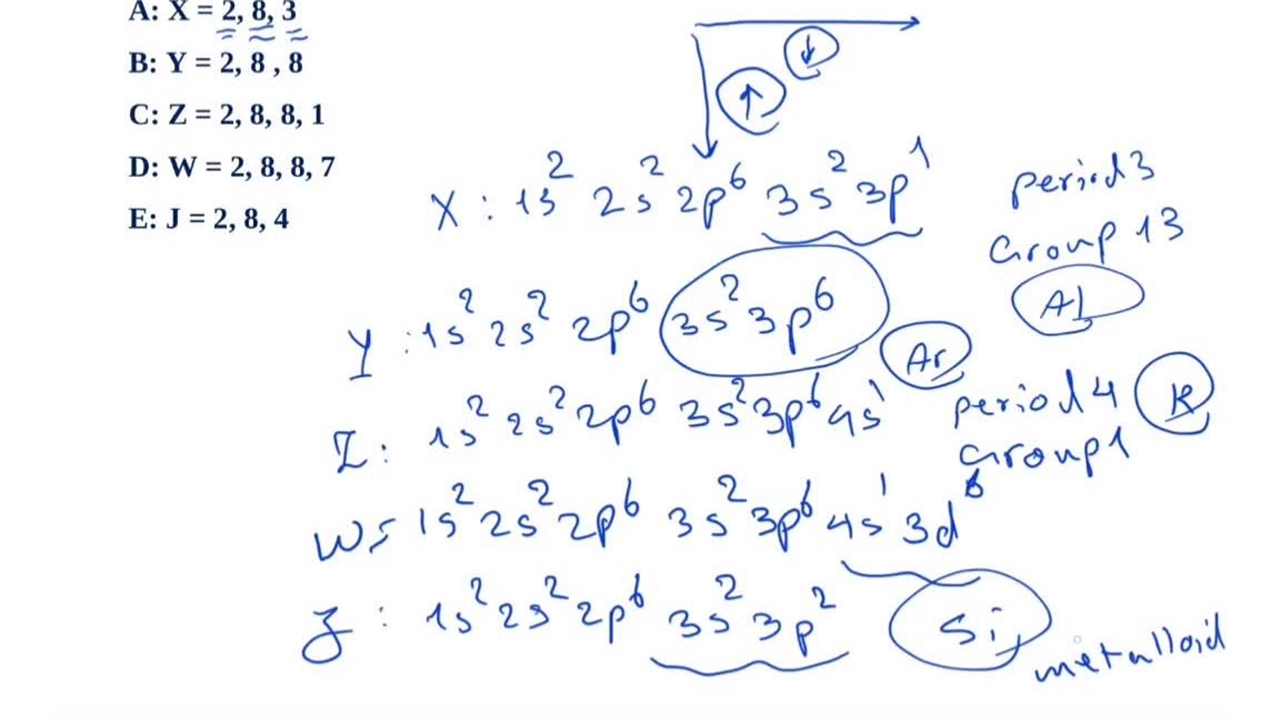 A: X = 2, 8, 3
B: Y = 2, 8 , 8
C: Z = 2, 8, 8, 1
D: W = 2, 8, 8, 7
E: J = 2, 8, 4
X : 1s² 2s² 2p⁶ 3s² 3p¹
period 3
Group 13
Al
Y : 1s² 2s² 2p⁶ 3s² 3p⁶
Ar
Z : 1s² 2s² 2p⁶ 3s² 3p⁶ 4s¹
period 4
Group 1
K
W : 1s² 2s² 2p⁶ 3s² 3p⁶ 4s¹ 3d⁶
J : 1s² 2s² 2p⁶ 3s² 3p²
Si
metalloid